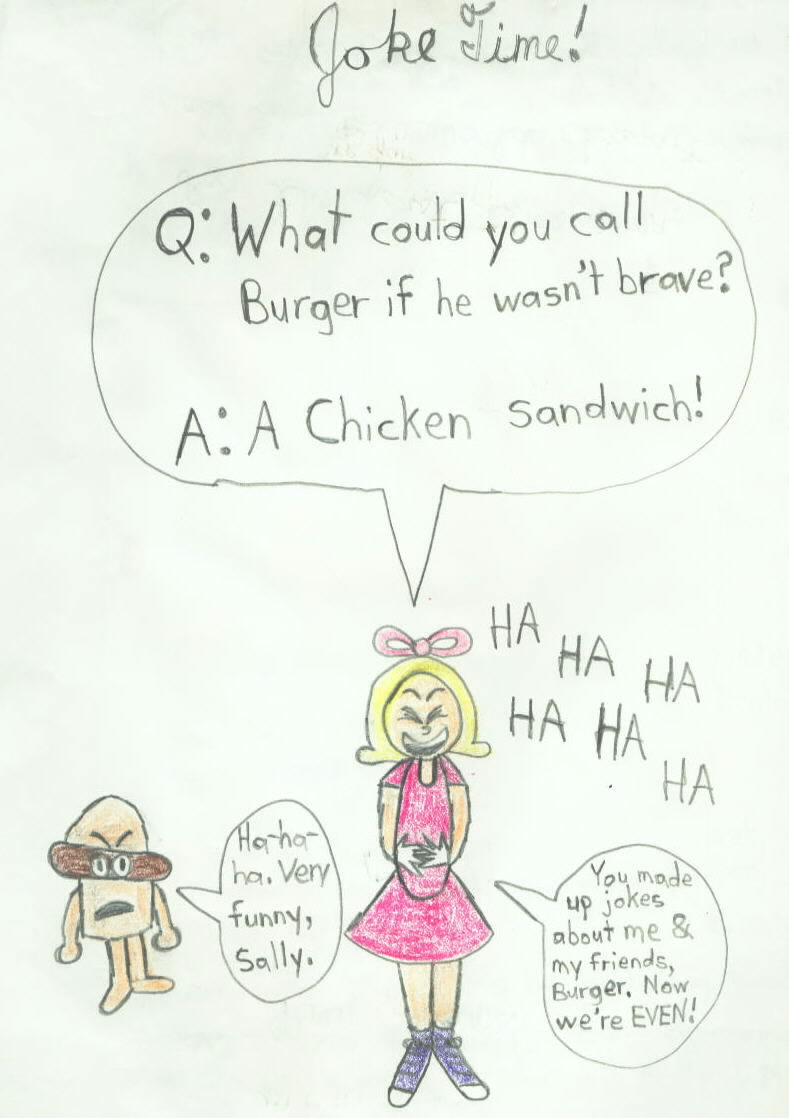 Joke Time!
Q: What could you call
Burger if he wasn't brave?
A: A Chicken sandwich!
HA
HA
HA
HA
HA
HA
Ha-ha-
ha. Very
funny,
Sally.
You made
up jokes
about me &
my friends,
Burger. Now
we're EVEN!